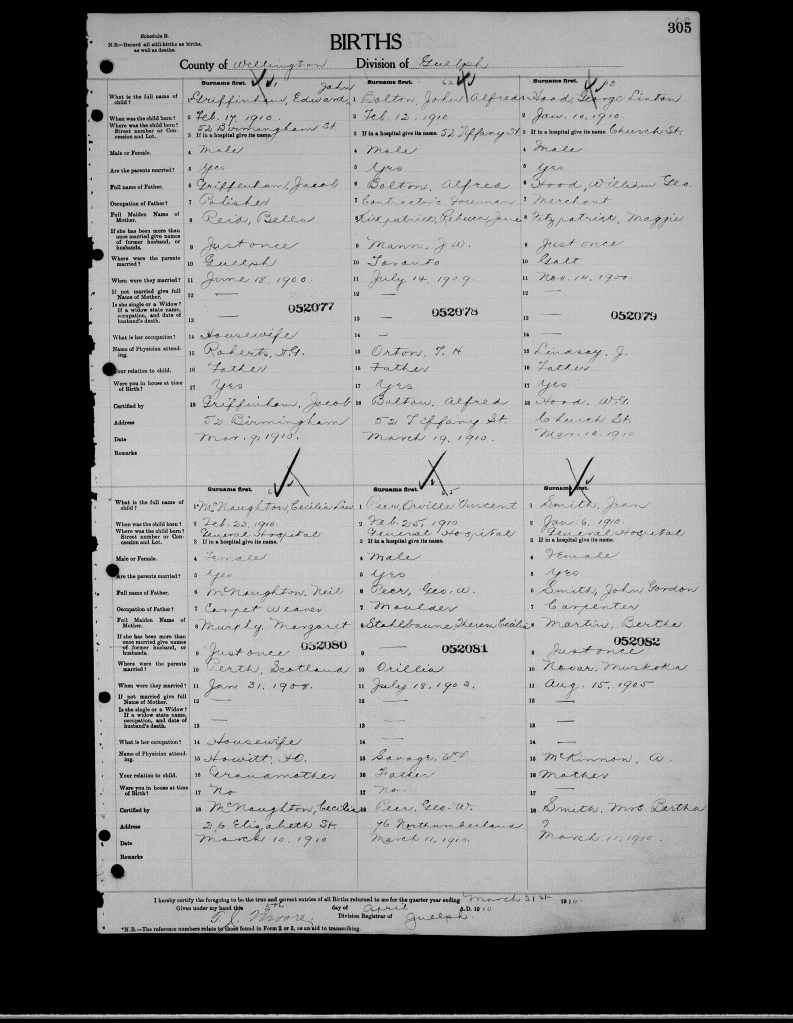 305
Schedule B.
N.B.—Record all still births as births, as well as deaths.
BIRTHS
County of Wellington Division of Guelph
Surname first. Surname first. Surname first.
John
What is the full name of child? 1 Griffinham, Edward, 1 Bolton, John Alfred 1 Hood, George Linton
When was the child born? 2 Feb. 17, 1910. 2 Feb. 12, 1910 2 Jan. 10, 1910
Where was the child born? Street number or Concession and Lot. 3 If in a hospital give its name. 52 Birmingham St. 3 If in a hospital give its name. 52 Tiffany St. 3 If in a hospital give its name. Church St.
Male or Female. 4 Male 4 Male 4 Male
Are the parents married? 5 yes 5 Yes 5 yes
Full name of Father. 6 Griffenham, Jacob 6 Bolton, Alfred 6 Hood, William Geo
Occupation of Father? 7 Polisher 7 Contractor's Foreman 7 Merchant
Full Maiden Name of Mother. 8 Reid, Bella 8 Kirkpatrick, Rebecca Jane 8 Fitzpatrick, Maggie
If she has been more than once married give names of former husband, or husbands. 9 Just once 9 Mann, J.W. 9 Just once
Where were the parents married? 10 Guelph 10 Toronto 10 Galt
When were they married? 11 June 18, 1900. 11 July 14, 1909. 11 Nov. 14, 1900
If not married give full Name of Mother. 12 — 12 — 12 —
Is she single or a Widow? If a widow state name, occupation, and date of husband's death. 13 052077 13 — 052078 13 — 052079
What is her occupation? 14 Housewife 14 — 14 —
Name of Physician attending. 15 Roberts, 15 Orton, T. H 15 Lindsay, J.
Your relation to child. 16 Father 16 Father 16 Father
Were you in house at time of Birth? 17 Yes 17 Yes 17 Yes
Certified by 18 Griffinham, Jacob 18 Bolton, Alfred 18 Hood, W.G.
Address 52 Birmingham 52 Tiffany St. Church St.
Date Mar. 9, 1910. March 19, 1910. Mar. 1910
Remarks
Surname first. Surname first. Surname first.
What is the full name of child? 1 McNaughton, Cecilia 1 Peer, Orville Vincent 1 Smith, Jean
When was the child born? 2 Feb. 23, 1910 2 Feb. 25, 1910 2 Jan. 6, 1910
Where was the child born? Street number or Concession and Lot. 3 If in a hospital give its name. General Hospital 3 If in a hospital give its name. General Hospital 3 If in a hospital give its name. General Hospital
Male or Female. 4 Female 4 Male 4 Female
Are the parents married? 5 yes 5 yes 5 yes
Full name of Father. 6 McNaughton, Neil 6 Peer, Geo. W. 6 Smith, John Gordon
Occupation of Father? 7 Carpet Weaver 7 Moulder 7 Carpenter
Full Maiden Name of Mother. 8 Murphy, Margaret 8 Theresa Cecilia 8 Martin, Bertha
If she has been more than once married give names of former husband, or husbands. 9 Just once 052080 9 — 052081 9 Just once 052082
Where were the parents married? 10 Perth, Scotland 10 Orillia 10 Novar, Muskoka
When were they married? 11 Jan 31, 1908. 11 July 18, 1903. 11 Aug. 15, 1905
If not married give full Name of Mother. 12 — 12 — 12 —
Is she single or a Widow? If a widow state name, occupation, and date of husband's death. 13 — 13 — 13 —
What is her occupation? 14 Housewife 14 — 14 —
Name of Physician attending. 15 Howitt, H.O. 15 Savage, 15 McKinnon, A.
Your relation to child. 16 Grandmother 16 Father 16 Mother
Were you in house at time of Birth? 17 No 17 No 17 —
Certified by 18 McNaughton, Cecilia 18 Peer, Geo. W. 18 Smith, Mrs Bertha
Address 26 Elizabeth St. 76 Northumberland ?
Date March 10, 1910 March 11, 1910. March 11, 1910.
Remarks
I hereby certify the foregoing to be the true and correct entries of all Births returned to me for the quarter year ending March 31st 1910.
Given under my hand this 5th day of April A.D. 1910
T. J. Moore, Division Registrar of Guelph
*N.B.—The reference numbers relate to those found in Form 2 or 3, as an aid to transcribing.